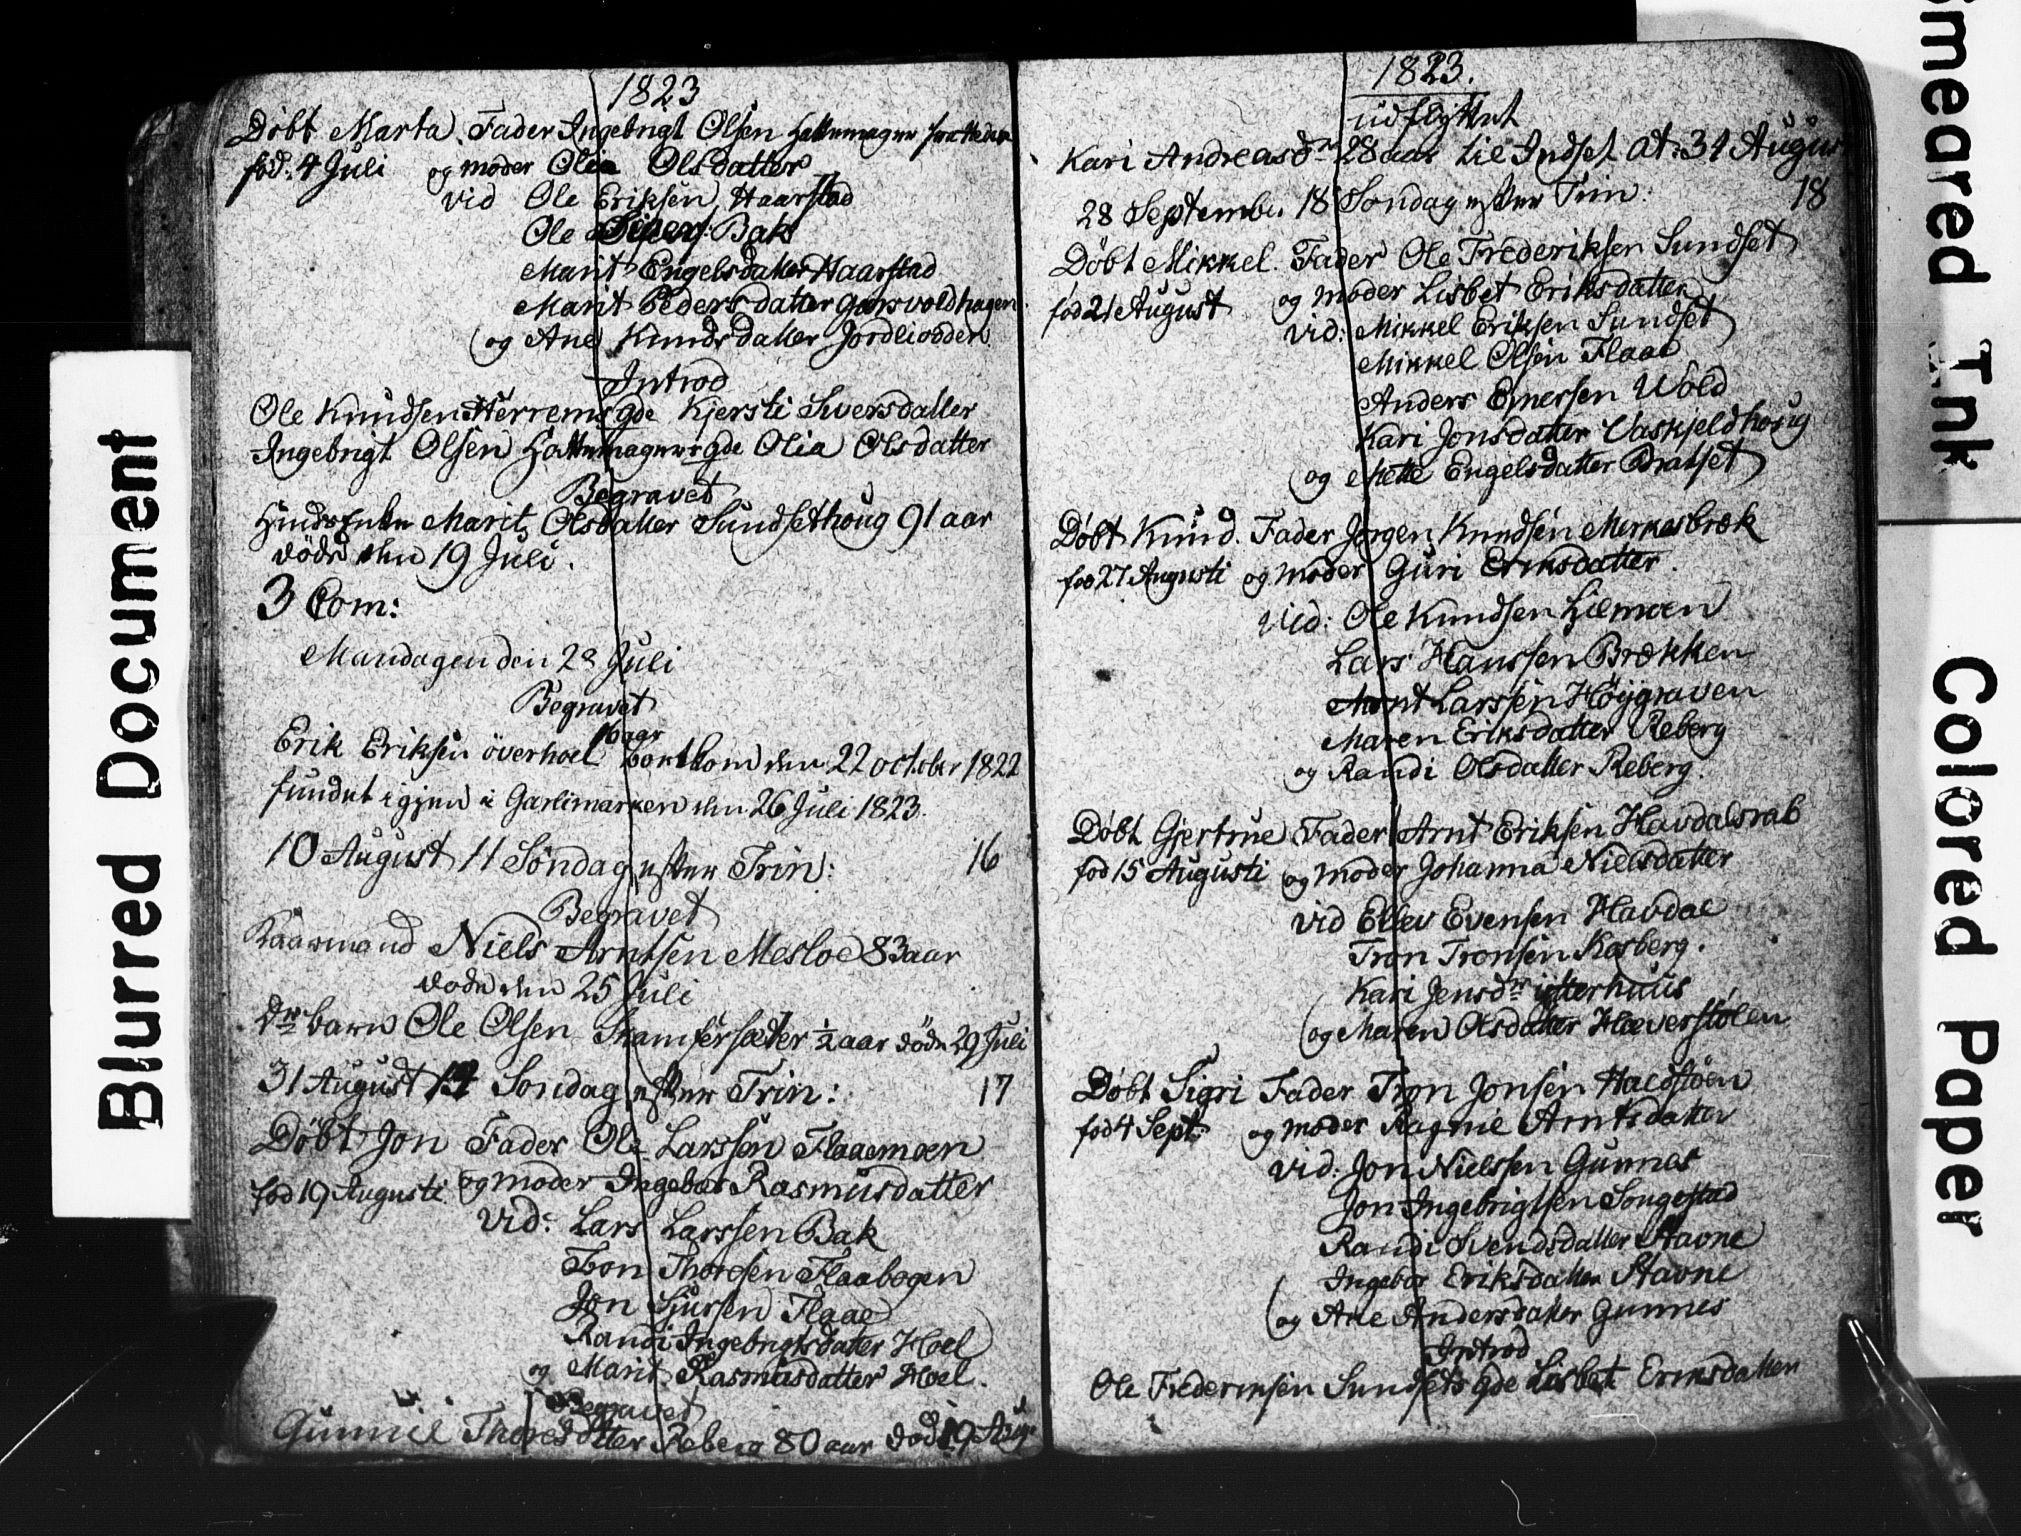 1823
Døbt Marta. Fader Ingebrigt Olsen Hattemager
fød: 4 Juli og moder Olia Olsdatter
vid Ole Eriksen Haarstad
Ole Bak
Marit Engelsdatter Haarstad
Marit Pedersdatter Gorsvoldhagen
og Ane Knudsdatter Jordliodden
Introd
Ole Knudsen Herrems gde Kjersti Siversdatter
Ingebrigt Olsen Hattemagers gde Olia Olsdatter
Begravet
Marit Olsdatter Sundsethoug 91 aar
døde den 19 Juli.
3 Com:
Mandagen den 28 Juli
Begravet
16 aar
Erik Eriksen överhoel bortkom den 22 october 1822
fundet igjen i Garlimarken den 26 Juli 1823.
10 August 11 Søndag efter Trin: 16
Begravet
Kaarmand Niels Arntsen Mesloe 83 aar
døde den 25 Juli
barn Ole Olsen Skamfersæter ½ aar døde 29 Juli
31 August 14 Søndag efter Trin: 17
Døbt Jon Fader Ole Larssen Flaaemoen
fød 19 Augusti og moder Ingebor Rasmusdatter
vid: Lars Larssen Bak
Thoresen Flaabogen
Jon Sjursen Flaae
Randi Ingebrigtsdatter Hoel
og Marit Rasmusdatter Hoel.
Begravet
Gunnil Thoresdatter Reberg 80 aar død 19 Aug:
1823.
udflyttet
Kari Andreasdr 28 aar til Indset At: 31 August
28 September 18 Søndag efter Trin: 18
Døbt Mikkel. Fader Ole Frederiksen Sundset
fød 21 August og moder Lisbet Eriksdatter
vid: Mikkel Eriksen Sundset
Mikkel Olsen Flaae
Anders Wold
Kari Jonsdatter Vaskjeldhoug
og Mette Engelsdatter Bratset
Døbt Knud. Fader Jørgen Knudsen Merkesbræk
fød 27 Augusti og moder Guri Eriksdatter.
vid: Ole Knudsen Liemoen
Lars Hanssen Brækken
Arnt Larssen Höygraven
Maren Eriksdatter Reberg
og Randi Olsdatter Reberg.
Døbt Gjertrue Fader Arnt Eriksen Havdalsrab
fød 15 Augusti og moder Johanna Nielsdatter
vid Ellev Evensen Havdal
Tron Tronsen Kosberg.
Kari Jensdr ytterhuus
og Maren Olsdatter Hæverstølen
Døbt Sigri Fader Tron Jonsen Haldstöen
fød 4 Sept: og moder Ragnil Arntsdatter
vid: Jon Nielssen Gunnes
Jon Ingebrigtsen Songestad
Randi Svendsdatter Stavne
Ingebor Eriksdatter Stavne
og Ane Andersdatter Gunnes
Introd
Ole Frederiksen Sundsets gde Lisbet Eriksdatter
Blurred Document
Smeared Ink
Colored Paper